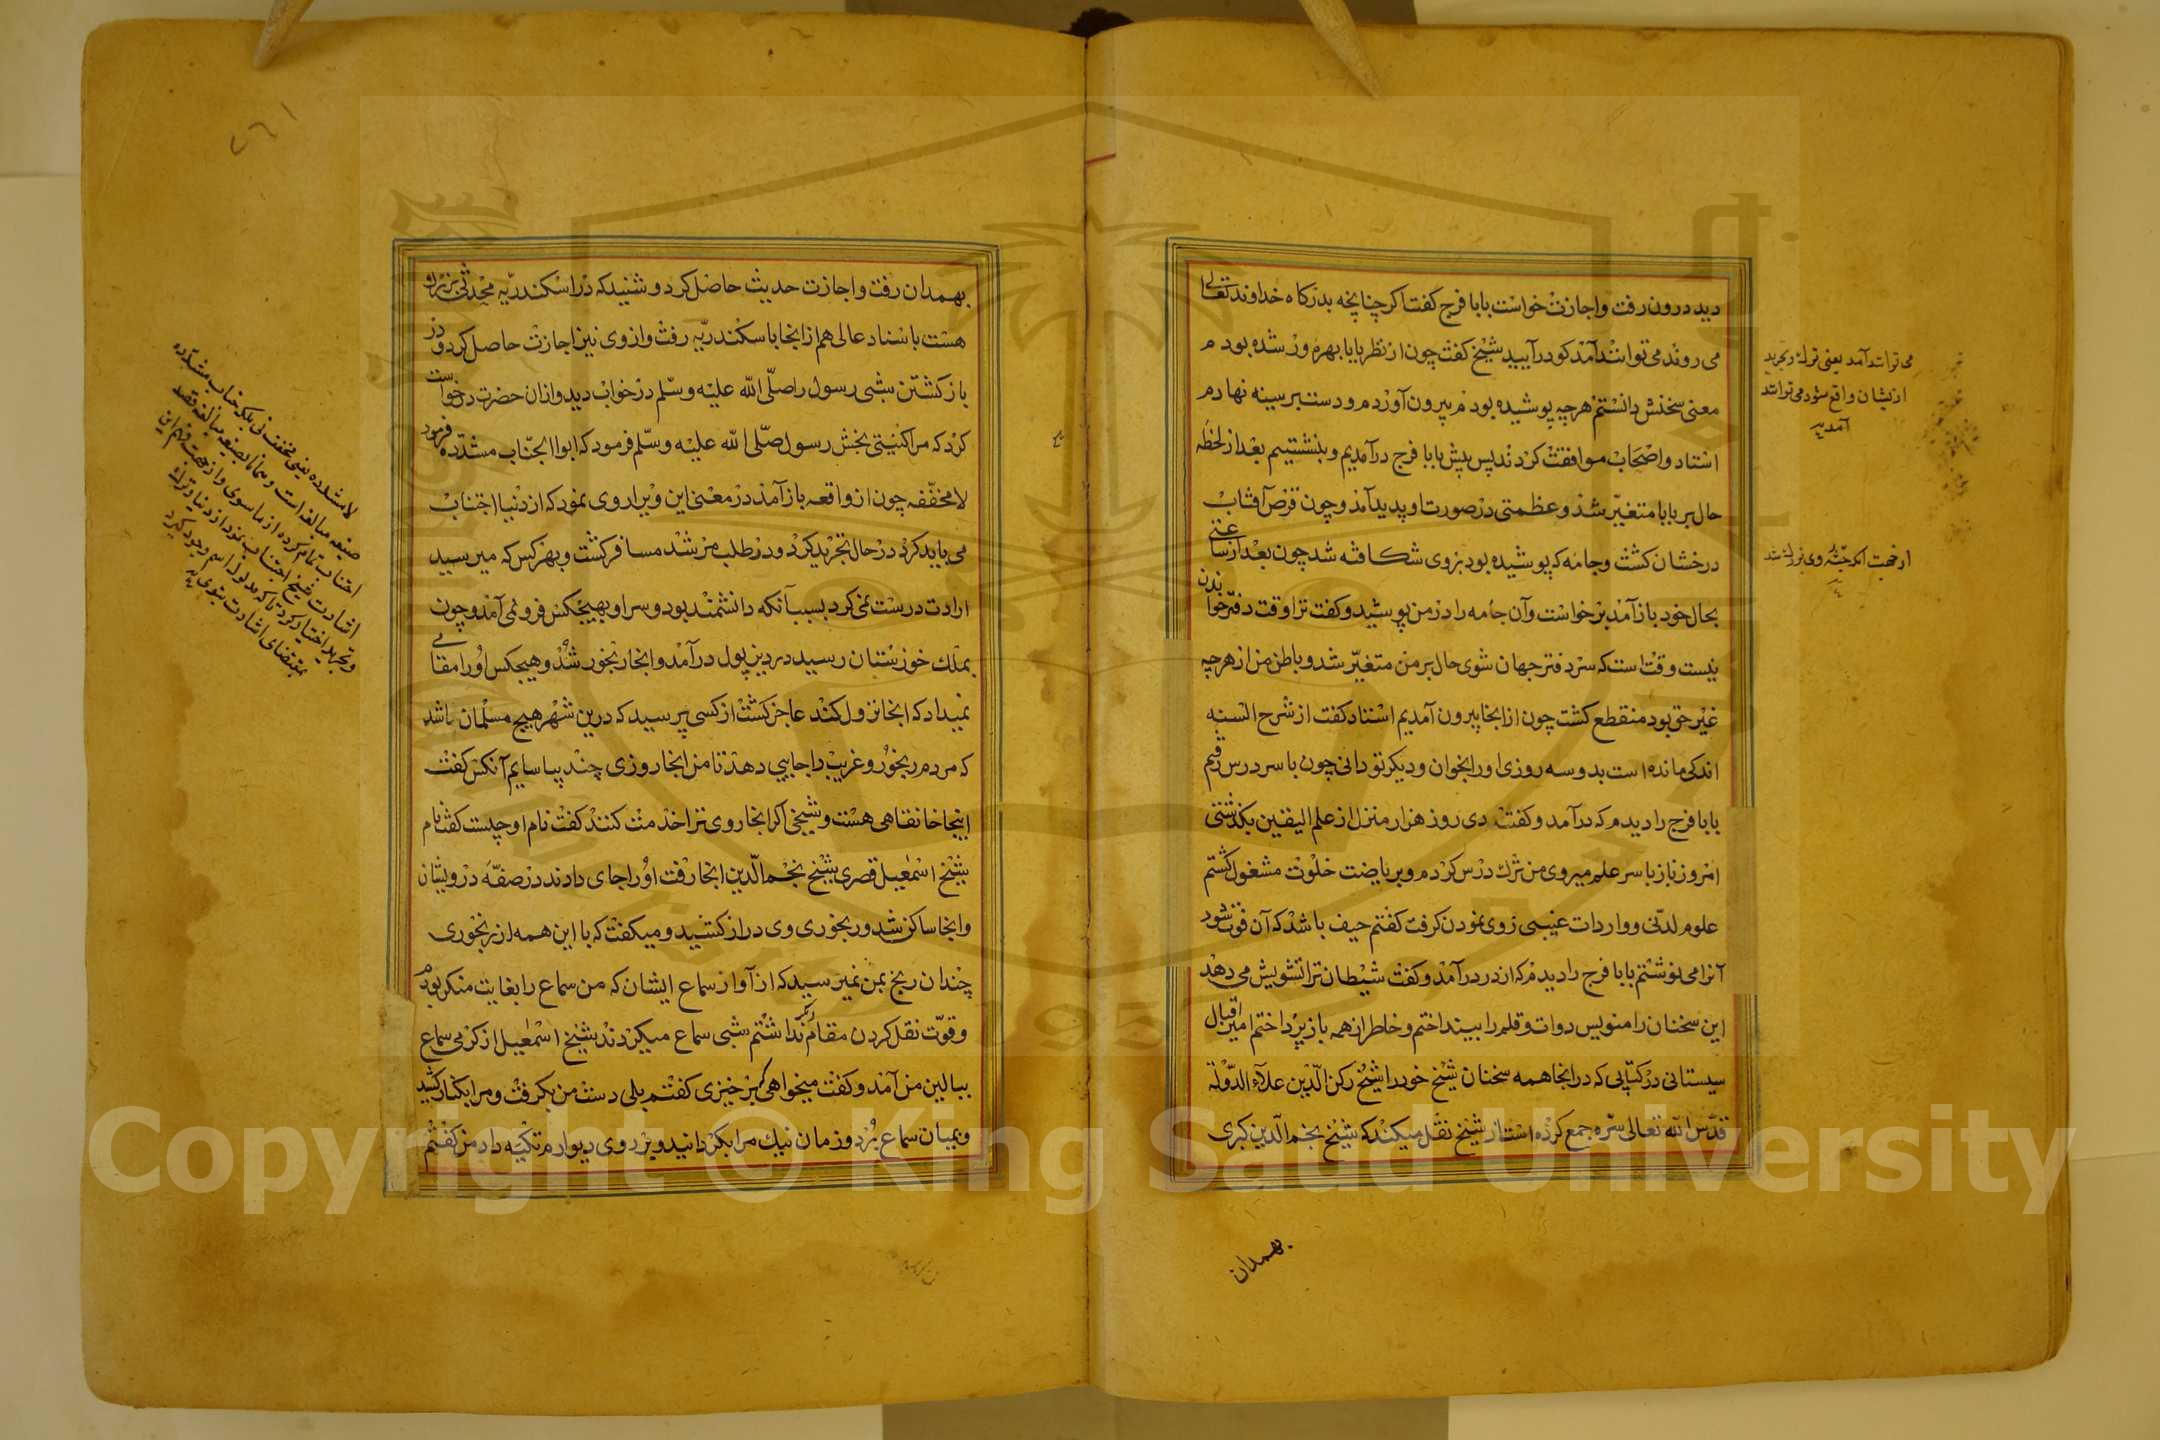 دید درون رفت و اجازت خواست بابا فرج کفت اکر چنانچه بدرکاه خداوند تعالی
می روند می توانند آمد کو درآیید شیخ کفت چون از نظر بابا بهره ور شده بودم
معنی سخنش دانستم هرچه پوشیده بودم بیرون آوردم و دست بر سینه نهادم
استاد و اصحاب موافقت کردند پس پیش بابا فرج درآمدیم و بنشستیم بعد از لحظه
حال بر بابا متغیّر شد و عظمتی در صورت او پدید آمد و چون قرص آفتاب
درخشان کشت و جامه که پوشیده بود بروی شکافته شد چون بعد از ساعتی
بحال خود باز آمد برخواست و آن جامه را در من پوشید و کفت ترا وقت دفتر خواندن
نیست وقت است که سر دفتر جهان شوی حال بر من متغیّر شد و باطن من از هرچه
غیر حق بود منقطع کشت چون از انجا بیرون آمدیم استاد کفت از شرح السنه
اندکی مانده است بدو سه روزی او را بخوان و دیکر تو دانی چون با سر درس رفتم
بابا فرج را دیدم که درآمد و کفت دی روز هزار منزل از علم الیقین بکذشتی
امروز باز با سر علم میروی من ترک درس کردم و بریاضت خلوت مشغول کشتم
علوم لدنّی و واردات غیبی روی نمودن کرفت کفتم حیف باشد که آن فوت شود
آنرا می نوشتم بابا فرج را دیدم که از در درآمد و کفت شیطان ترا تشویش می دهد
این سخنان را منویس دوات و قلم را بینداختم و خاطر از همه باز پرداختم امیر اقبال
سیستانی در کتابی که در انجا همه سخنان شیخ خود را شیخ رکن الدّین علاء الدّوله
قدّس الله تعالی سرّه جمع کرده است از شیخ نقل میکند که شیخ نجم الدّین کبری
بهمدان
می توانند آمد یعنی ترک و تجرید
از ایشان واقع شود می توانند
آمد
از جهت آنکه جثّه وی بزرک شد
بهمدان رفت و اجازت حدیث حاصل کرد و شنید که در اسکندریّه محدثی بزرک
هست با سناد عالی هم از انجا باسکندریّه رفت و از وی نیز اجازت حاصل کرد و در
بازکشتن شبی رسول را صلّی الله علیه و سلّم در خواب دید و ازان حضرت درخواست
کرد که مرا کنیتی بخش رسول صلّی الله علیه و سلّم فرمود که ابوا الجنّاب مشدّده فرمود
لا مخفّفه چون از واقعه باز آمد در معنی این ویرا روی نمود که از دنیا اجتناب
می باید کرد در حال تجرید کرد و در طلب مرشد مسافر کشت و بهر کس که میرسید
ارادت درست نمی کرد بسبب آنکه دانشمند بود و سر او بهیچکس فرو نمی آمد و چون
بملک خوزستان رسید در دیزپول درآمد و انجا رنجور شد و هیچکس او را مقامی
نمیداد که انجا نزول کند عاجز کشت از کسی پرسید که درین شهر هیچ مسلمان باشد
که مردم رنجور و غریب را جایی دهد تا من انجا روزی چند بیاسایم آنکس کفت
اینجا خانقاهی هست و شیخی اکر انجا روی ترا خدمت کنند کفت نام او چیست کفت نام
شیخ اسمعیل قصری شیخ نجم الدّین انجا رفت او را جای دادند در صفّه درویشان
و انجا ساکن شد و رنجوری وی دراز کشید و میکفت که با این همه از رنجوری
چندان رنج بمن نمیرسید که از آواز سماع ایشان که من سماع را بغایت منکر بودم
و قوّت نقل کردن مقام نداشتم شبی سماع میکردند شیخ اسمعیل از کرمی سماع
ببالین من آمد و کفت میخواهی که برخیزی کفتم بلی دست من بکرفت و مرا بکنار کشید
و بمیان سماع برد و زمان نیک مرا بکردانید و بر روی دیوارم تکیه داد من کفتم
Copyright © King Saud University